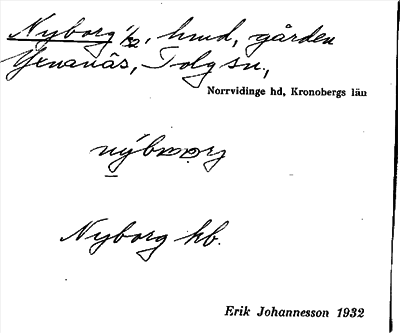 Nyborg 1/32, hmd, gården
Grananäs, Tolg sn,
Norrvidinge hd, Kronobergs län
Nyborg hb.
Erik Johannesson 1932